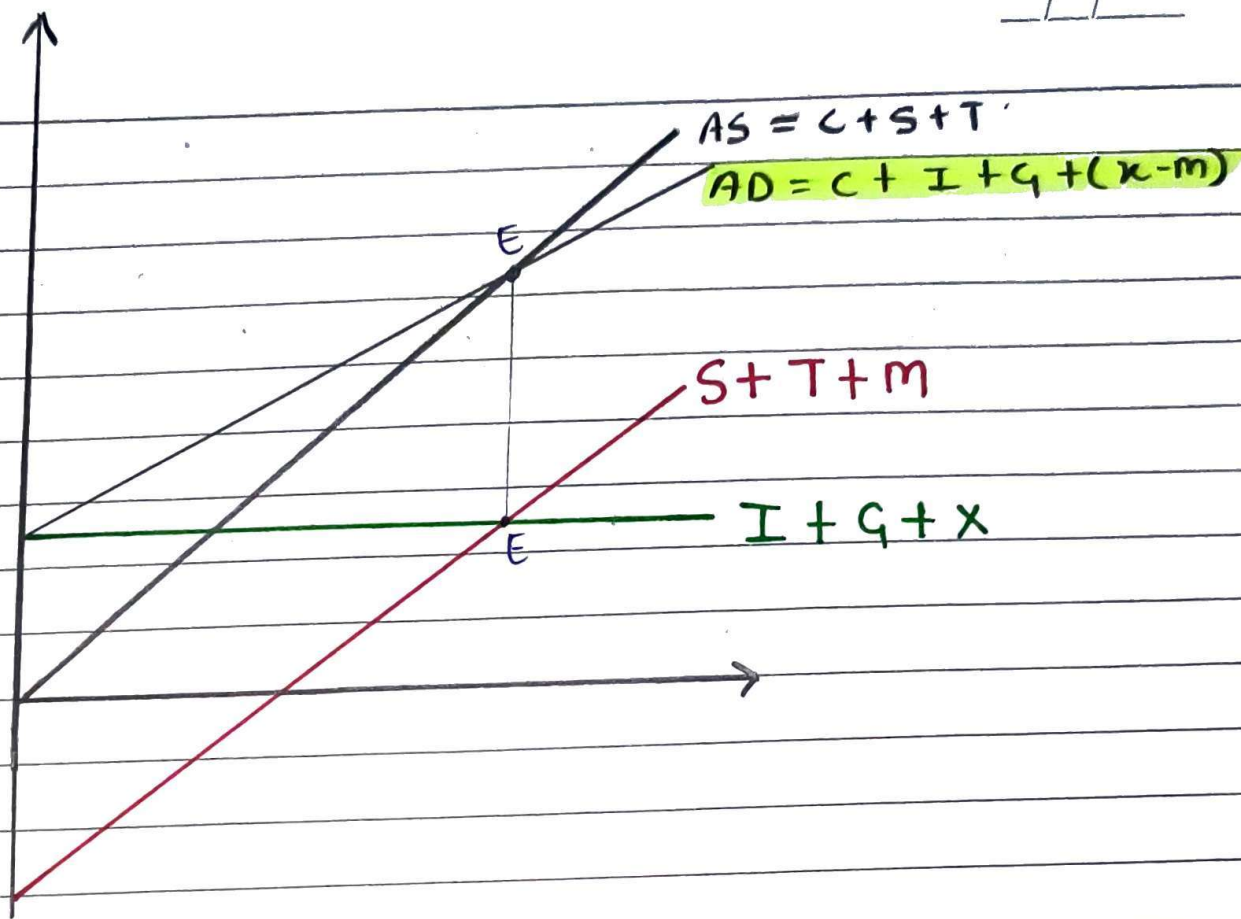 AS = C + S + T
AD = C + I + G + (x-m)
E
S + T + M
I + G + X
E